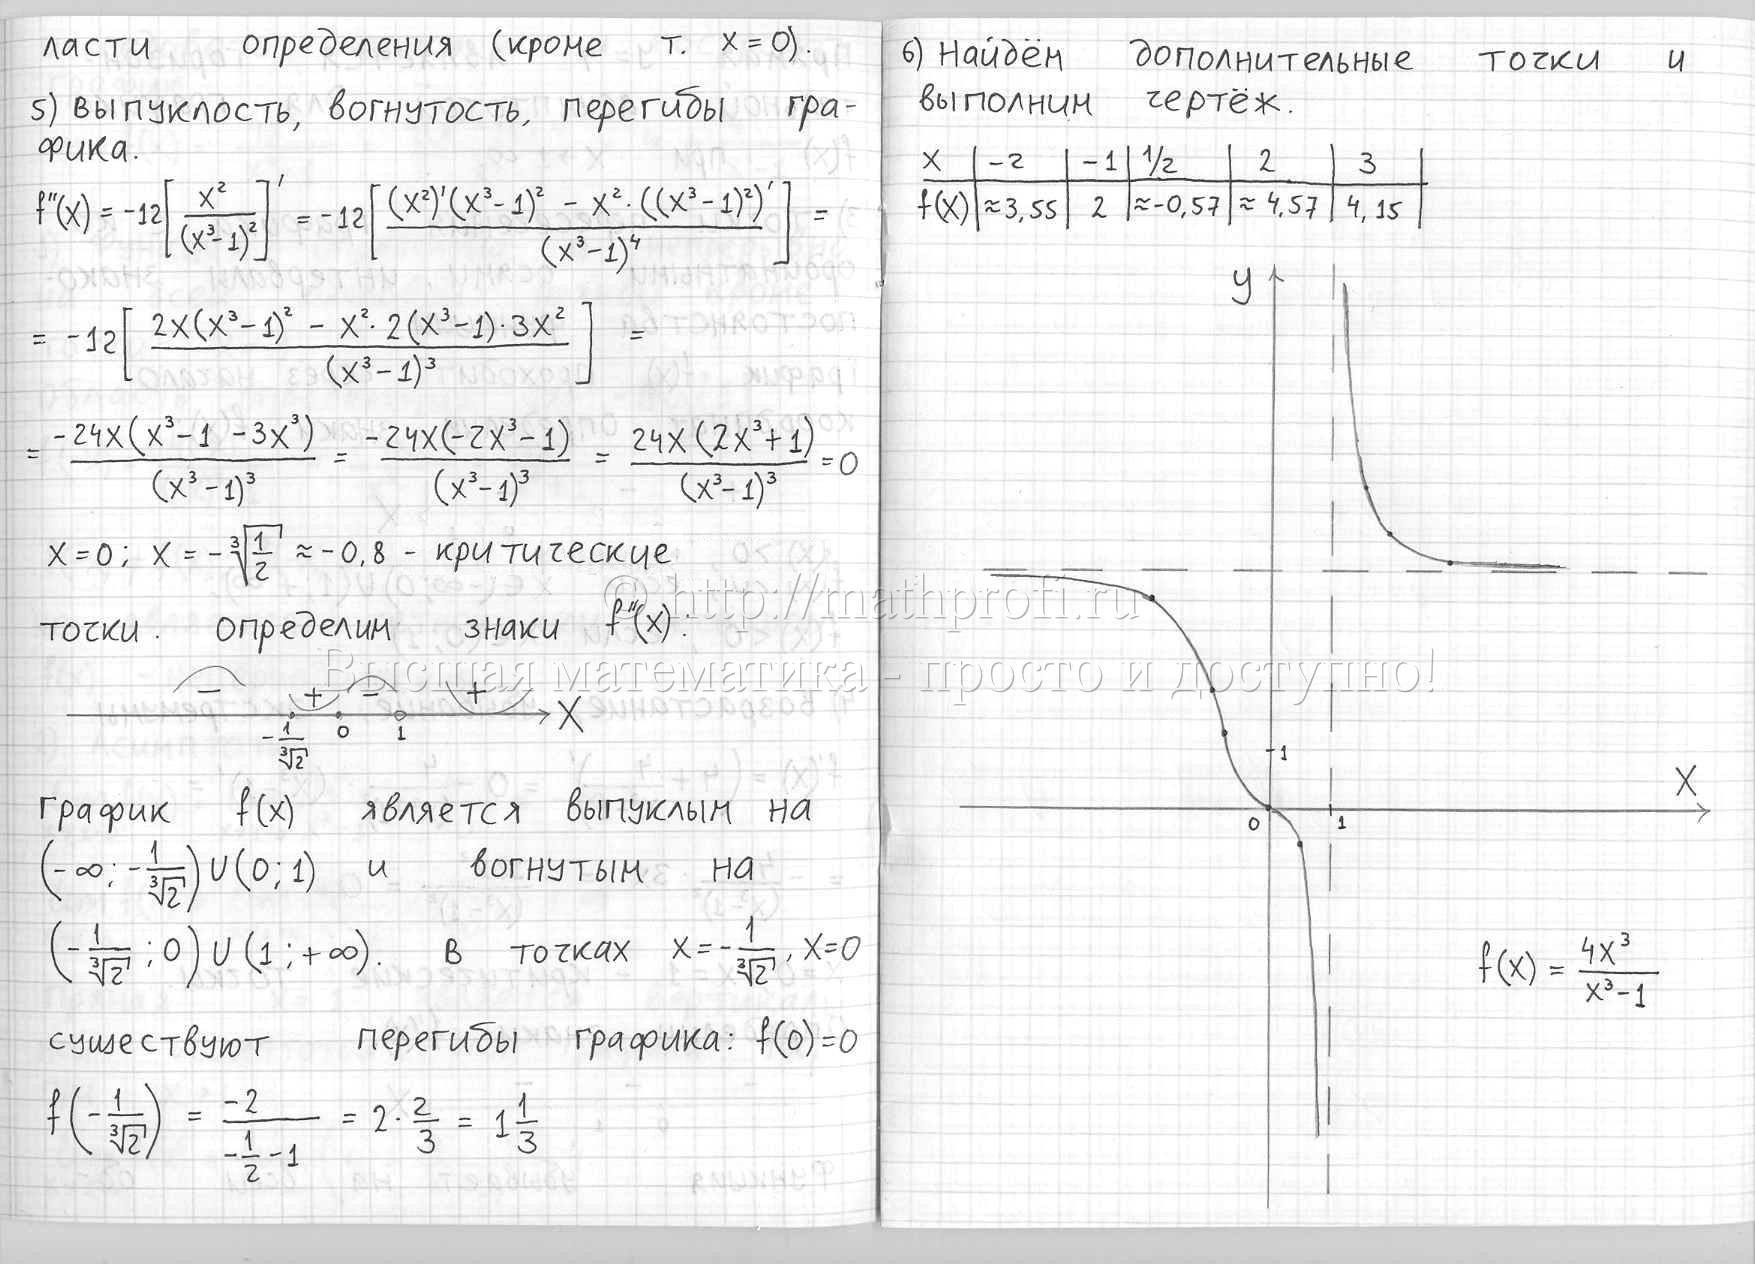 ласти определения (кроме т. x=0).
5) Выпуклость, вогнутость, перегибы гра-
фика.
f''(x) = -12[x²/(x³-1)²]' = -12[((x²)'(x³-1)² - x²·((x³-1)²)')/(x³-1)⁴] =
= -12[(2x(x³-1)² - x²·2(x³-1)·3x²)/(x³-1)³] =
= -24x(x³-1-3x³)/(x³-1)³ = -24x(-2x³-1)/(x³-1)³ = 24x(2x³+1)/(x³-1)³ = 0
x=0; x = -∛(1/2) ≈ -0,8 - критические
точки. определим знаки f''(x):
- + - +
-1/∛2 0 1 X
График f(x) является выпуклым на
(-∞; -1/∛2) U (0; 1) и вогнутым на
(-1/∛2; 0) U (1; +∞). В точках x = -1/∛2, x=0
существуют перегибы графика: f(0)=0
f(-1/∛2) = -2/(-1/2 -1) = 2·2/3 = 1 1/3
6) Найдём дополнительные точки и
выполним чертёж.
x | -2 | -1 | 1/2 | 2 | 3 |
f(x) | ≈3,55 | 2 | ≈-0,57 | ≈4,57 | 4,15 |
y
1
X
0 1
f(x) = 4x³/(x³-1)
© http://mathprofi.ru
Высшая математика - просто и доступно!